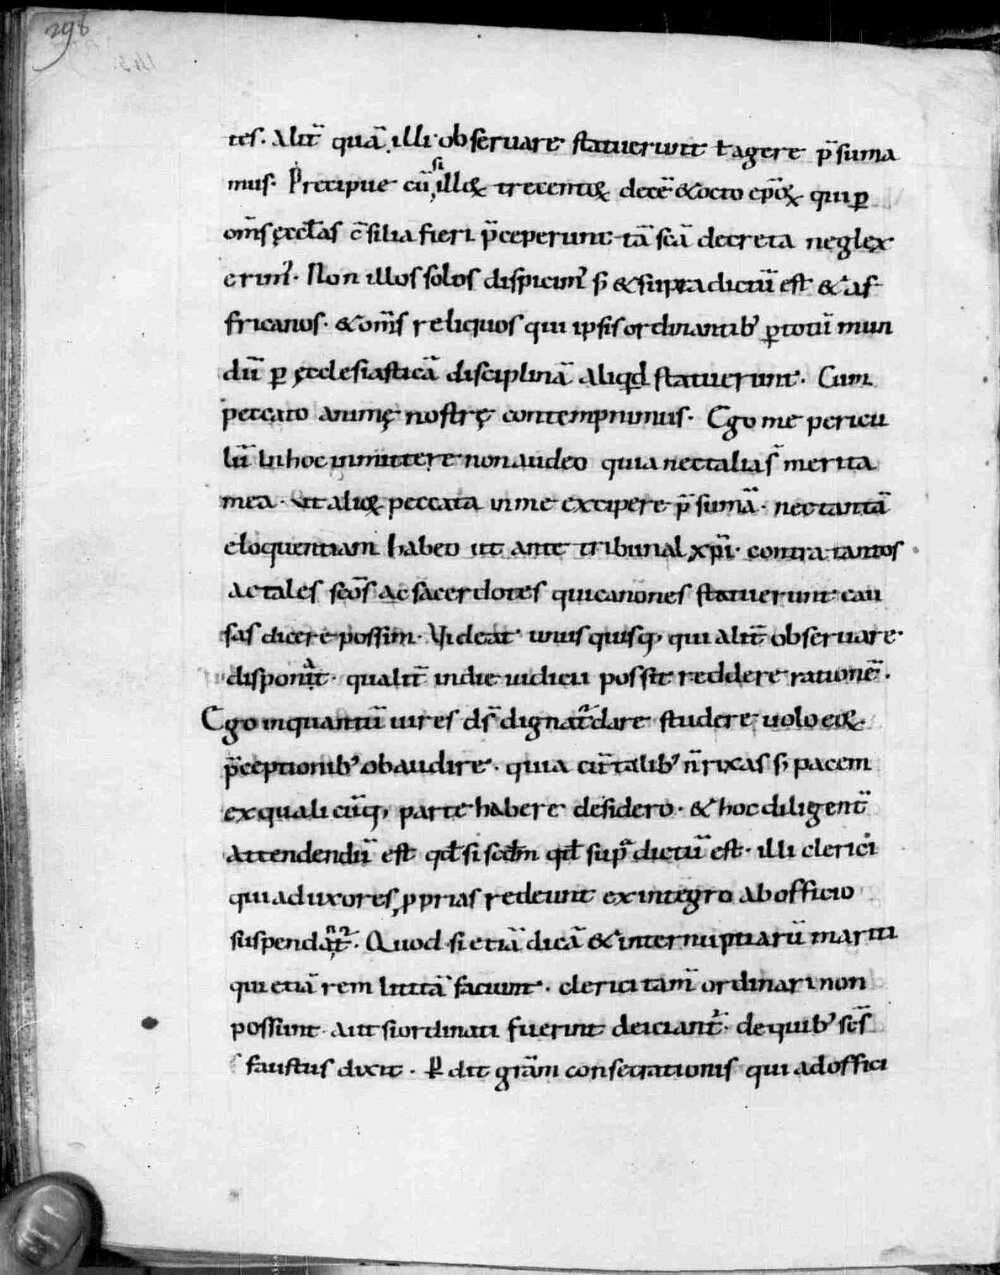 298
tes. Alit̄ quā illi obseruare statuerunt t agere p̄suma
mus. Precipue cū si illoꝝ trecentoꝝ decē & octo ep̄oꝝ qui ꝑ
om̄s ęccl̄as c̄silia fieri p̄ceperunt tā sc̄a decreta neglex
erim᾽. Non illos solos dispicim᾽ s̄ & supra dictū est & af
fricanos. & om̄s reliquos qui ipsis ordinantib᾽ ꝑ totū mun
dū ꝑ ęcclesiasticā disciplinā aliqd̄ statuerunt. Cum
peccato animę nostrę contempnimus. Ego me pericu
lū in hoc inmittere non audeo quia nec talia s̄ merita
mea. Vt alioꝝ peccata in me excipere p̄sumā. nec tantā
eloquentiam habeo ut ante tribunal xp̄i. contra tantos
ac tales sc̄os ac sacerdotes qui canones statuerunt cau
sas dicere possim. Videat unusquisq; qui alit̄ obseruare
disponit. qualit̄ in die iudicii possit reddere rationē.
Ego inquantū uires ds̄ dignat᾽ dare studere uolo eoꝝ
p̄ceptionib᾽ obaudire. quia cū talib᾽ n̄ rixas s̄ pacem
ex qualicūq; parte habere desidero. & hoc diligent̄
attendendū est qd̄ si scd̄m qd̄ sup᾽ dictū est. illi clerici
qui ad uxores ꝓprias redeunt ex integro ab officio
suspendant᾽. Quod si etiā dicā & internuptiarū mariti
qui etiā rem licitā faciunt. clerici tam̄ ordinari non
possunt. aut si ordinati fuerint deiciant᾽. de quib᾽ sc̄s
faustus dicit. ꝑdit gr̄am consecrationis qui ad offici